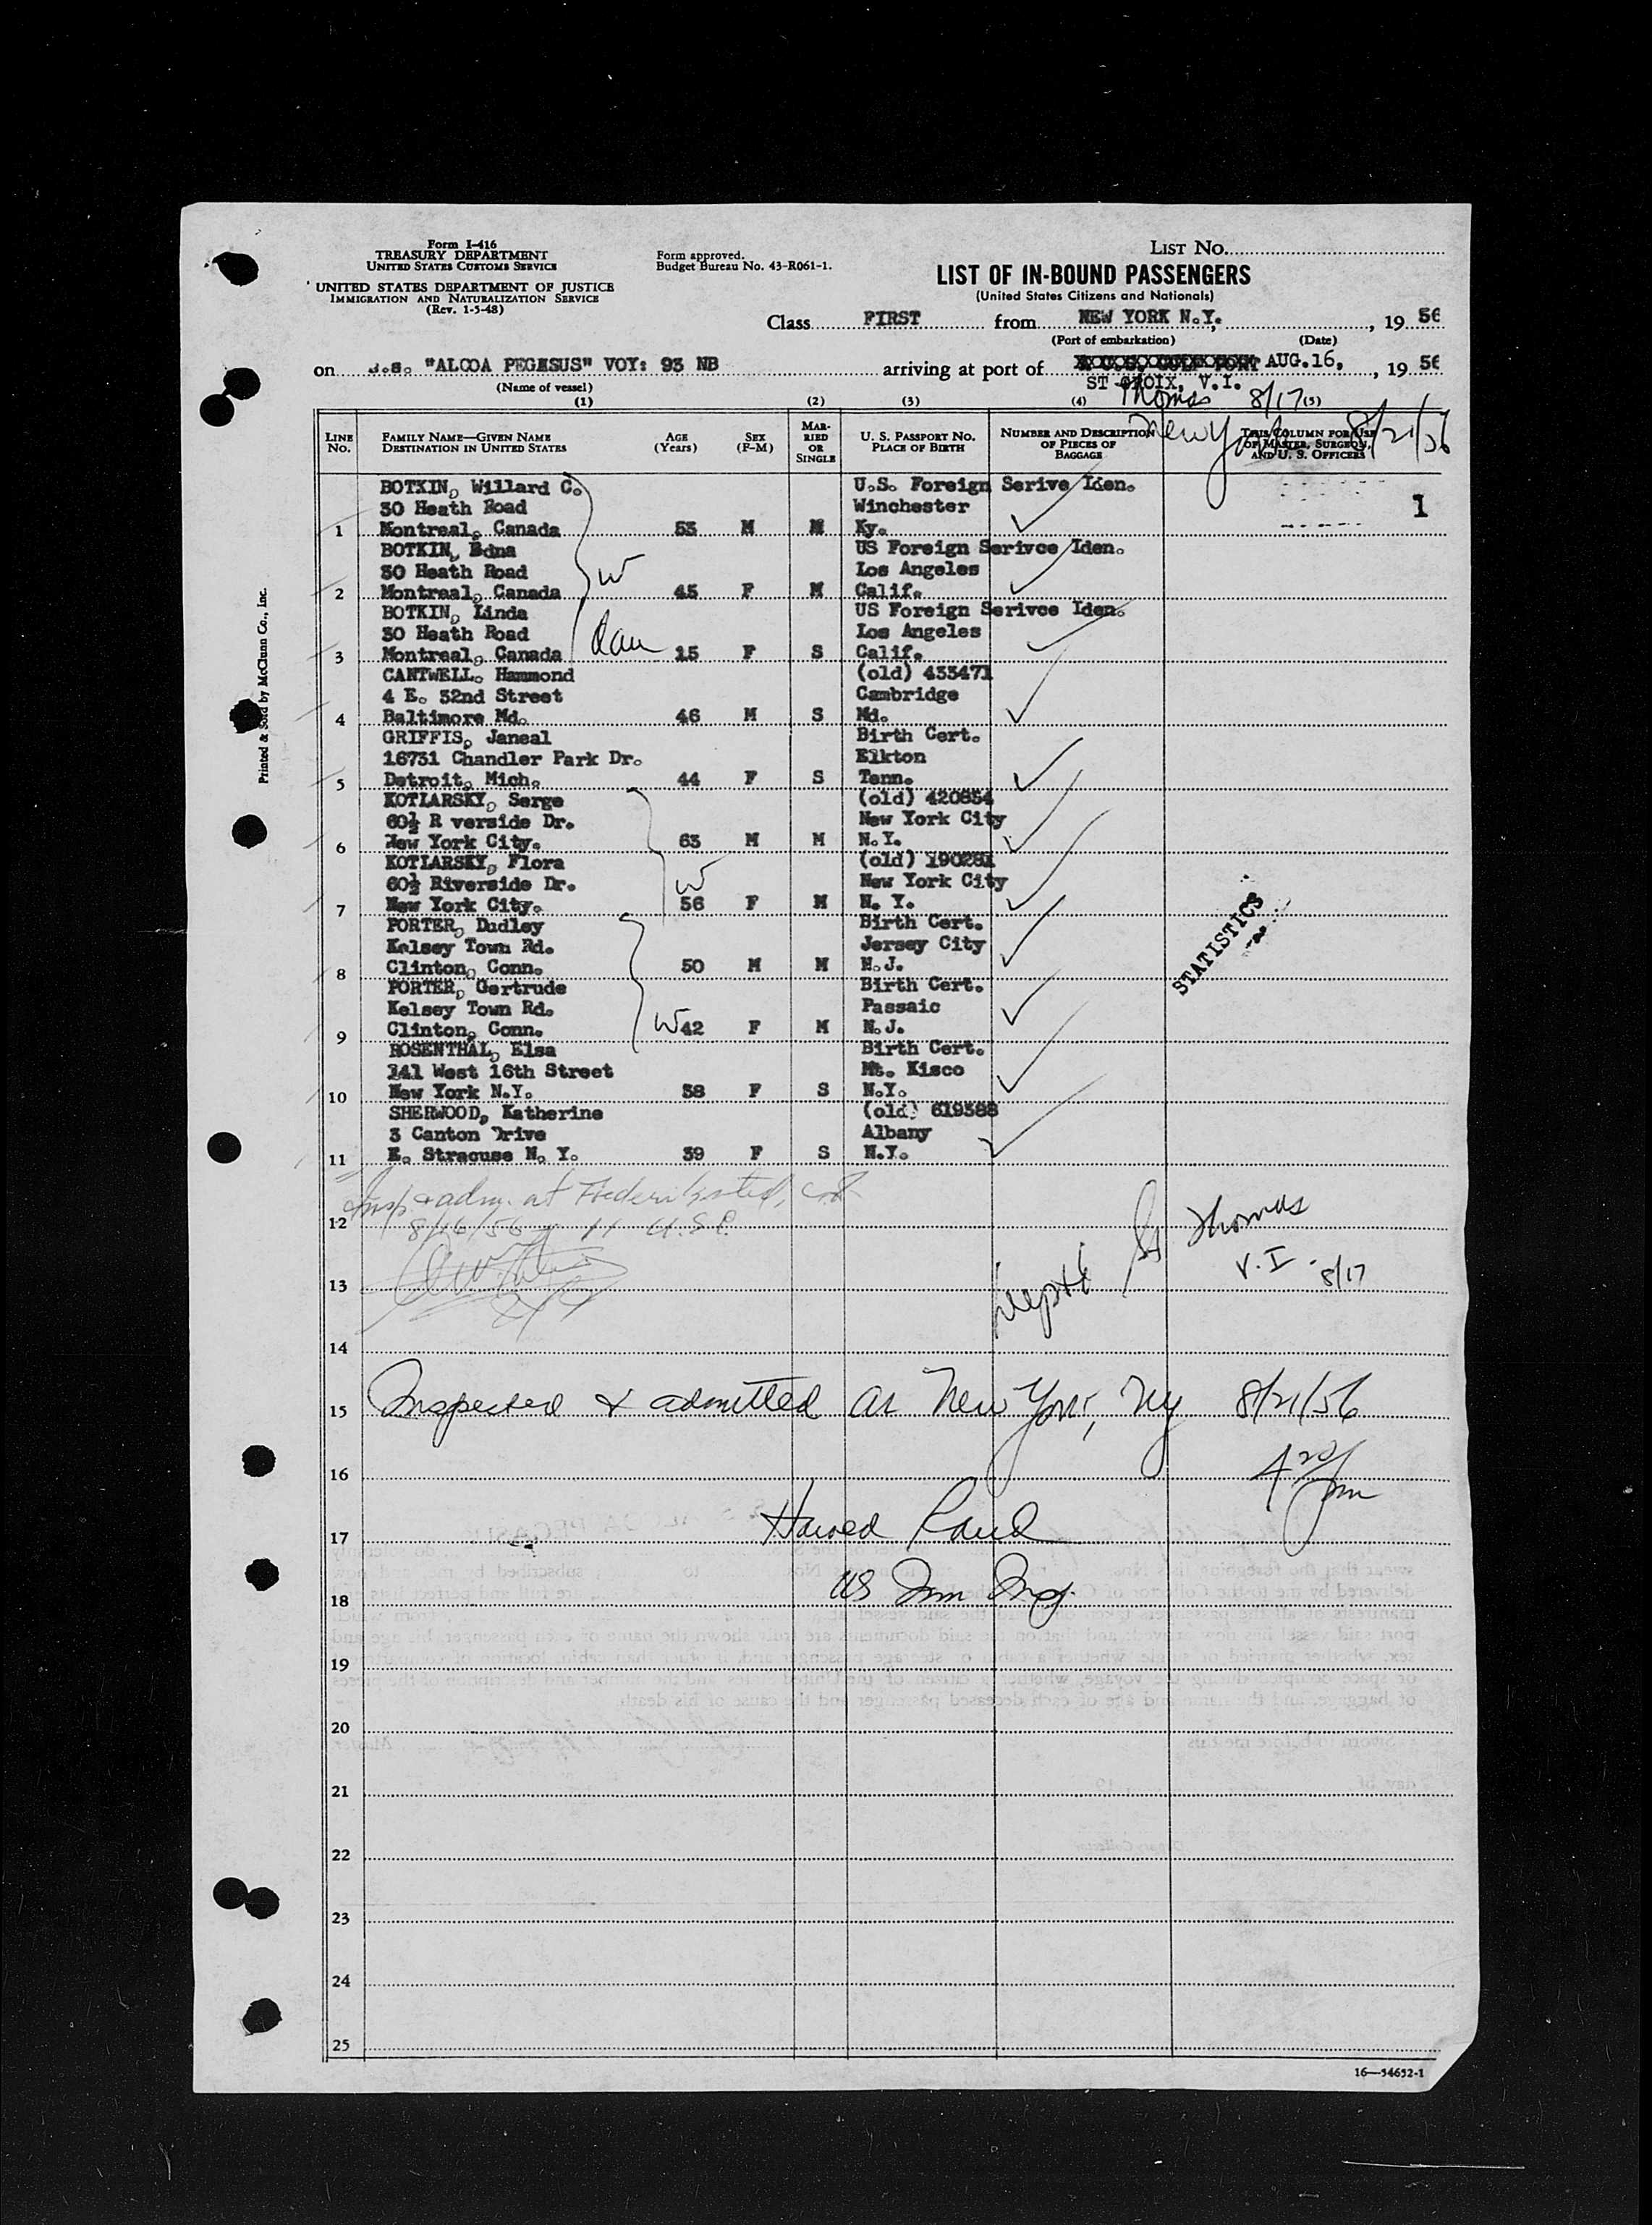 Form I-416
TREASURY DEPARTMENT
UNITED STATES CUSTOMS SERVICE
UNITED STATES DEPARTMENT OF JUSTICE
IMMIGRATION AND NATURALIZATION SERVICE
(Rev. 1-5-48)
Form approved.
Budget Bureau No. 43-R061-1.
LIST NO.
LIST OF IN-BOUND PASSENGERS
(United States Citizens and Nationals)
Class FIRST from NEW YORK N.Y. , 19 56
(Port of embarkation) (Date)
on S.S. "ALCOA PEGASUS" VOY: 93 NB arriving at port of AUG.16, , 19 56
(Name of vessel) ST CROIX, V.I.
Thomas 8/17
New York 8/21/56
(1) (2) (3) (4) (5)
LINE NO. FAMILY NAME—GIVEN NAME DESTINATION IN UNITED STATES AGE (Years) SEX (F-M) MARRIED OR SINGLE U. S. PASSPORT NO. PLACE OF BIRTH NUMBER AND DESCRIPTION OF PIECES OF BAGGAGE THIS COLUMN FOR USE OF MASTER, SURGEON, AND U. S. OFFICERS
BOTKIN, Willard C. U.S. Foreign Serive Iden.
30 Heath Road Winchester 1
1 Montreal, Canada 53 M M Ky.
BOTKIN, Edna US Foreign Serivce Iden.
30 Heath Road W Los Angeles
2 Montreal, Canada 45 F M Calif.
BOTKIN, Linda US Foreign Serivce Iden.
30 Heath Road dau Los Angeles
3 Montreal, Canada 15 F S Calif.
CANTWELL, Hammond (old) 433471
4 E. 32nd Street Cambridge
4 Baltimore Md. 46 M S Md.
GRIFFIS, Janeal Birth Cert.
16731 Chandler Park Dr. Elkton
5 Detroit, Mich. 44 F S Tenn.
KOTLARSKY, Serge (old) 420854
60½ R verside Dr. New York City
6 New York City. 63 M M N.Y.
KOTLARSKY, Flora (old) 190281
60½ Riverside Dr. W New York City
7 New York City. 56 F M N. Y.
PORTER, Dudley Birth Cert.
Kelsey Town Rd. Jersey City
8 Clinton, Conn. 50 M M N.J.
PORTER, Gertrude Birth Cert.
Kelsey Town Rd. Passaic
9 Clinton, Conn. W 42 F M N.J.
ROSENTHAL, Elsa Birth Cert.
141 West 16th Street Mt. Kisco
10 New York N.Y. 38 F S N.Y.
SHERWOOD, Katherine (old) 619388
3 Canton Drive Albany
11 E. Stracuse N. Y. 39 F S N.Y.
STATISTICS
Insp & adm. at Frederiksted,
12 8/16/56 11 U.S.C.
St Thomas
V.I. 8/17
13
14
15 Inspected & admitted at New York, NY 8/21/56
16 4 20/pm
17 Harold Rand
18 US Imm Insp.
19
20
21
22
23
24
25
16—54652-1
Printed & Sold by McClunn Co., Inc.